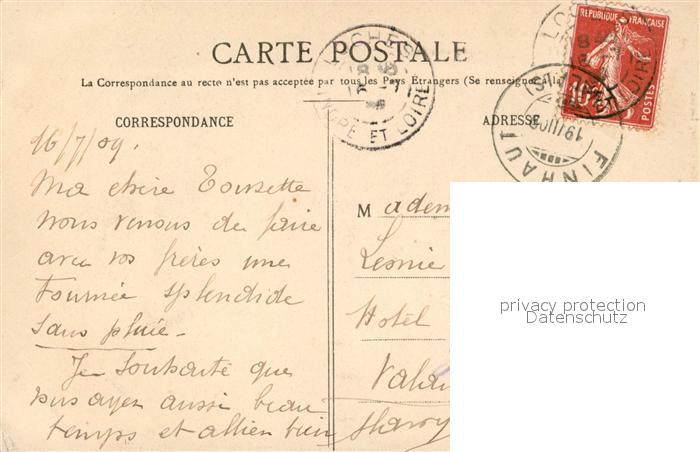 CARTE POSTALE
La Correspondance au recto n'est pas acceptée par tous les Pays Étrangers (Se renseigner à la
CORRESPONDANCE
ADRESSE
REPUBLIQUE FRANÇAISE
10
POSTES
LOCHES
INDRE ET LOIRE
FINHAUT
16/7/09.
Ma chère
Nous venons de faire
avec vos frères une
tournée splendide
sans pluie -
Je souhaite que
vous ayez aussi beau
temps et alliez bien
Madem
Leonie
Hotel
privacy protection
Datenschutz